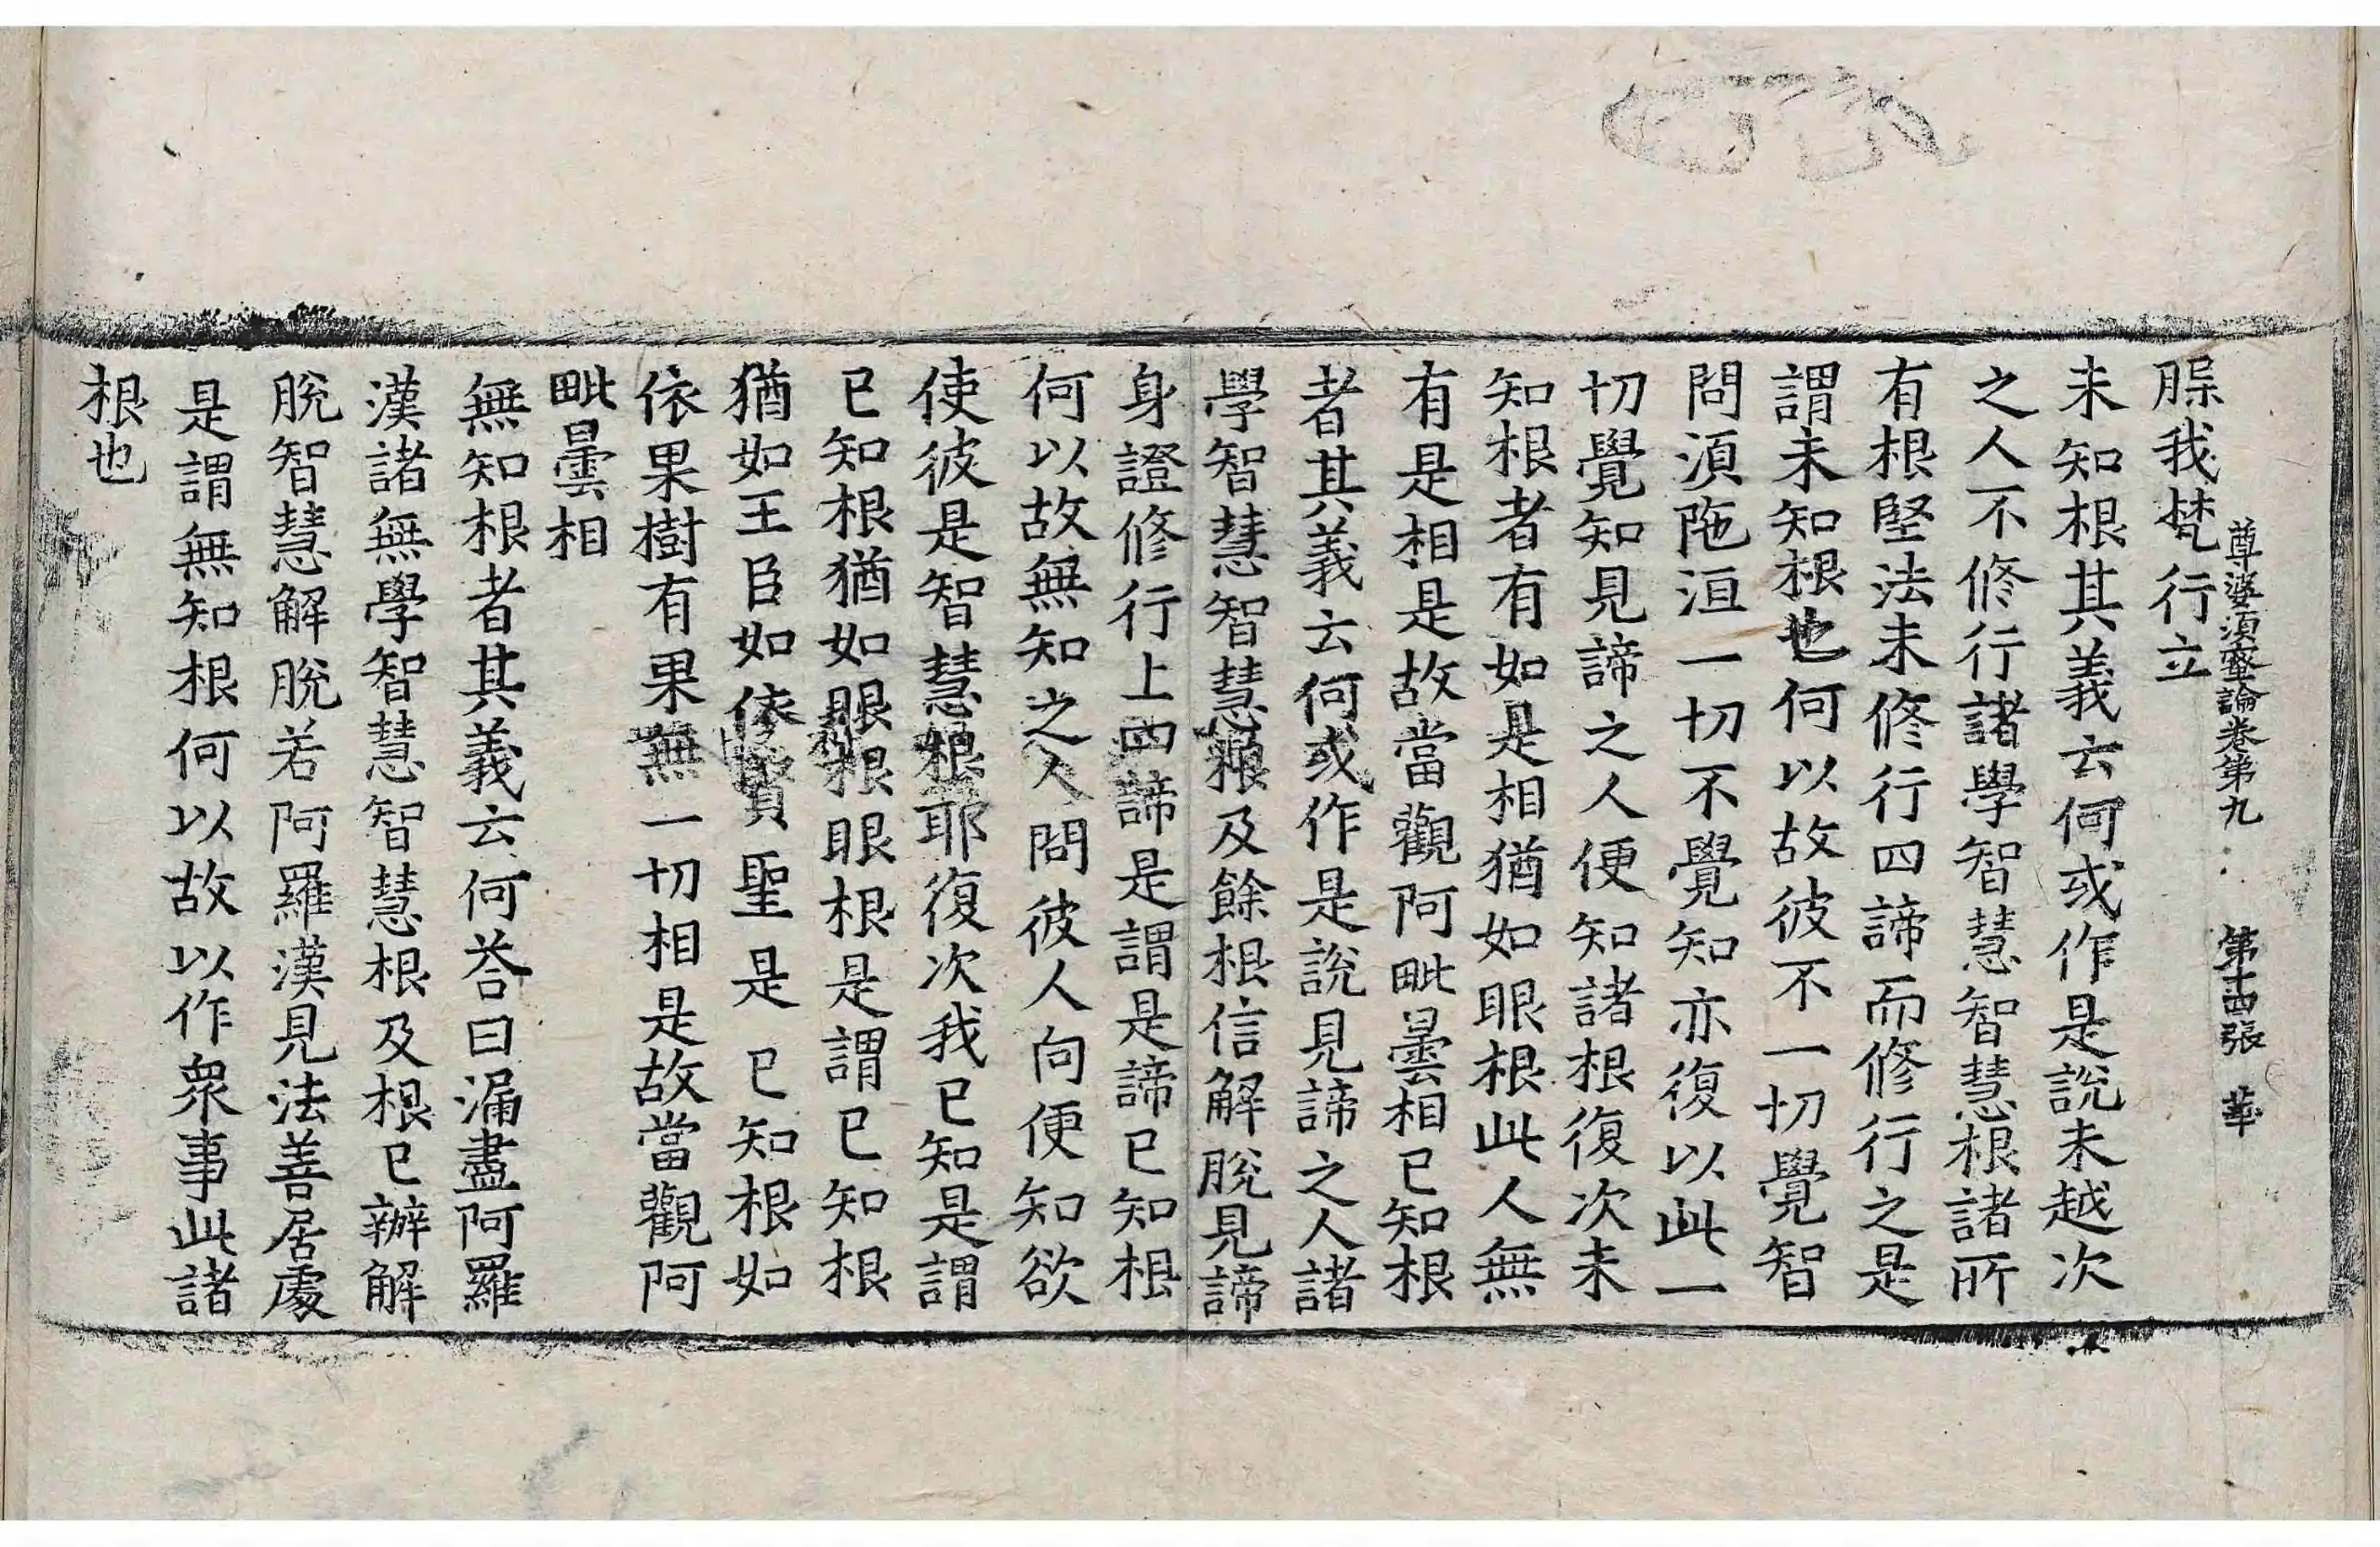 尊婆須蜜論卷第九 第十四張 華
脲我梵行立
未知根其義云何或作是說未越次
之人不修行諸學智慧智慧根諸所
有根堅法未修行四諦而修行之是
謂未知根也何以故彼不一切覺智
問湏陁洹一切不覺知亦復以此一
切覺知見諦之人便知諸根復次未
知根者有如是相猶如眼根此人無
有是相是故當觀阿毗曇相已知根
者其義云何或作是說見諦之人諸
學智慧智慧根及餘根信解脫見諦
身證修行上四諦是謂是諦已知根
何以故無知之人問彼人向便知欲
使彼是智慧根耶復次我已知是謂
已知根猶如眼根眼根是謂已知根
猶如王臣如依賢聖是已知根如
依果樹有果無一切相是故當觀阿
毗曇相
無知根者其義云何荅曰漏盡阿羅
漢諸無學智慧智慧根及根已辦解
脫智慧解脫若阿羅漢見法善居處
是謂無知根何以故以作衆事此諸
根也